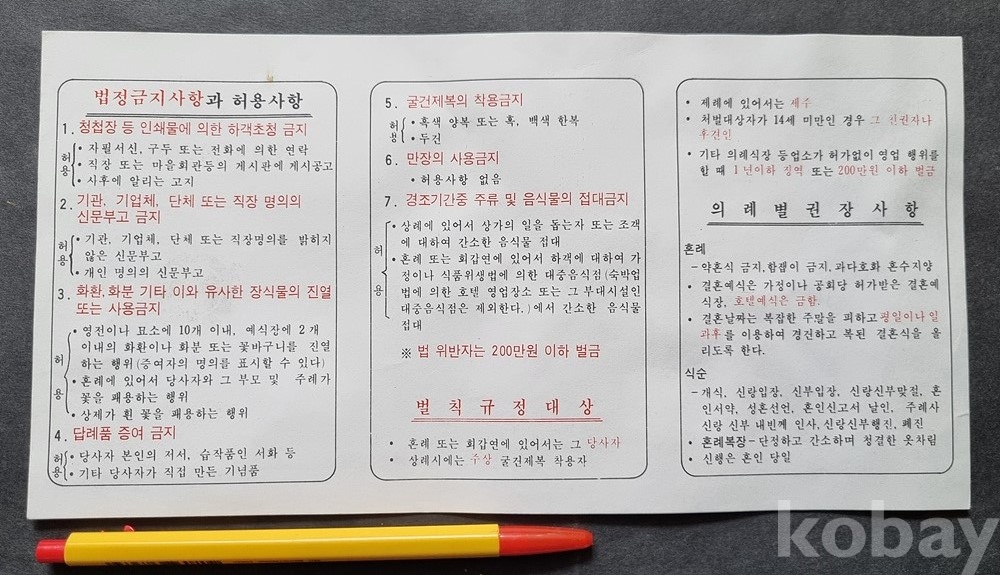 법정금지사항과 허용사항
1. 청첩장 등 인쇄물에 의한 하객초청 금지
허용
• 자필서신, 구두 또는 전화에 의한 연락
• 직장 또는 마을회관등의 게시판에 게시공고
• 사후에 알리는 고지
2. 기관, 기업체, 단체 또는 직장 명의의
신문부고 금지
허용
• 기관, 기업체, 단체 또는 직장명의를 밝히지
않은 신문부고
• 개인 명의의 신문부고
3. 화환,화분 기타 이와 유사한 장식물의 진열
또는 사용금지
허용
• 영전이나 묘소에 10개 이내, 예식장에 2개
이내의 화환이나 화분 또는 꽃바구니를 진열
하는 행위(증여자의 명의를 표시할 수 있다)
• 혼례에 있어서 당사자와 그 부모 및 주례가
꽃을 패용하는 행위
• 상제가 흰 꽃을 패용하는 행위
4. 답례품 증여 금지
허용
• 당사자 본인의 저서, 습작품인 서화 등
• 기타 당사자가 직접 만든 기념품
5. 굴건제복의 착용금지
허용
• 흑색 양복 또는 흑, 백색 한복
• 두건
6. 만장의 사용금지
• 허용사항 없음
7. 경조기간중 주류 및 음식물의 접대금지
허용
• 상례에 있어서 상가의 일을 돕는자 또는 조객
에 대하여 간소한 음식물 접대
• 혼례 또는 회갑연에 있어서 하객에 대하여 가
정이나 식품위생법에 의한 대중음식점(숙박업
법에 의한 호텔 영업장소 또는 그 부대시설인
대중음식점은 제외한다.)에서 간소한 음식물
접대
※ 법 위반자는 200만원 이하 벌금
벌칙규정대상
• 혼례 또는 회갑연에 있어서는 그 당사자
• 상례시에는 주상 굴건제복 착용자
• 제례에 있어서는 제주
• 처벌대상자가 14세 미만인 경우 그 친권자나
후견인
• 기타 의례식장 등업소가 허가없이 영업 행위를
할 때 1년이하 징역 또는 200만원 이하 벌금
의례별권장사항
혼례
- 약혼식 금지,함잽이 금지,과다호화 혼수지양
• 결혼예식은 가정이나 공회당 허가받은 결혼예
식장, 호텔예식은 금함.
• 결혼날짜는 복잡한 주말을 피하고 평일이나 일
과후를 이용하여 경건하고 복된 결혼식을 올
리도록 한다.
식순
- 개식, 신랑입장, 신부입장, 신랑신부맞절, 혼
인서약, 성혼선언, 혼인신고서 날인, 주례사
신랑 신부 내빈께 인사,신랑신부행진, 폐진
• 혼례복장-단정하고 간소하며 청결한 옷차림
• 신행은 혼인 당일
kobay